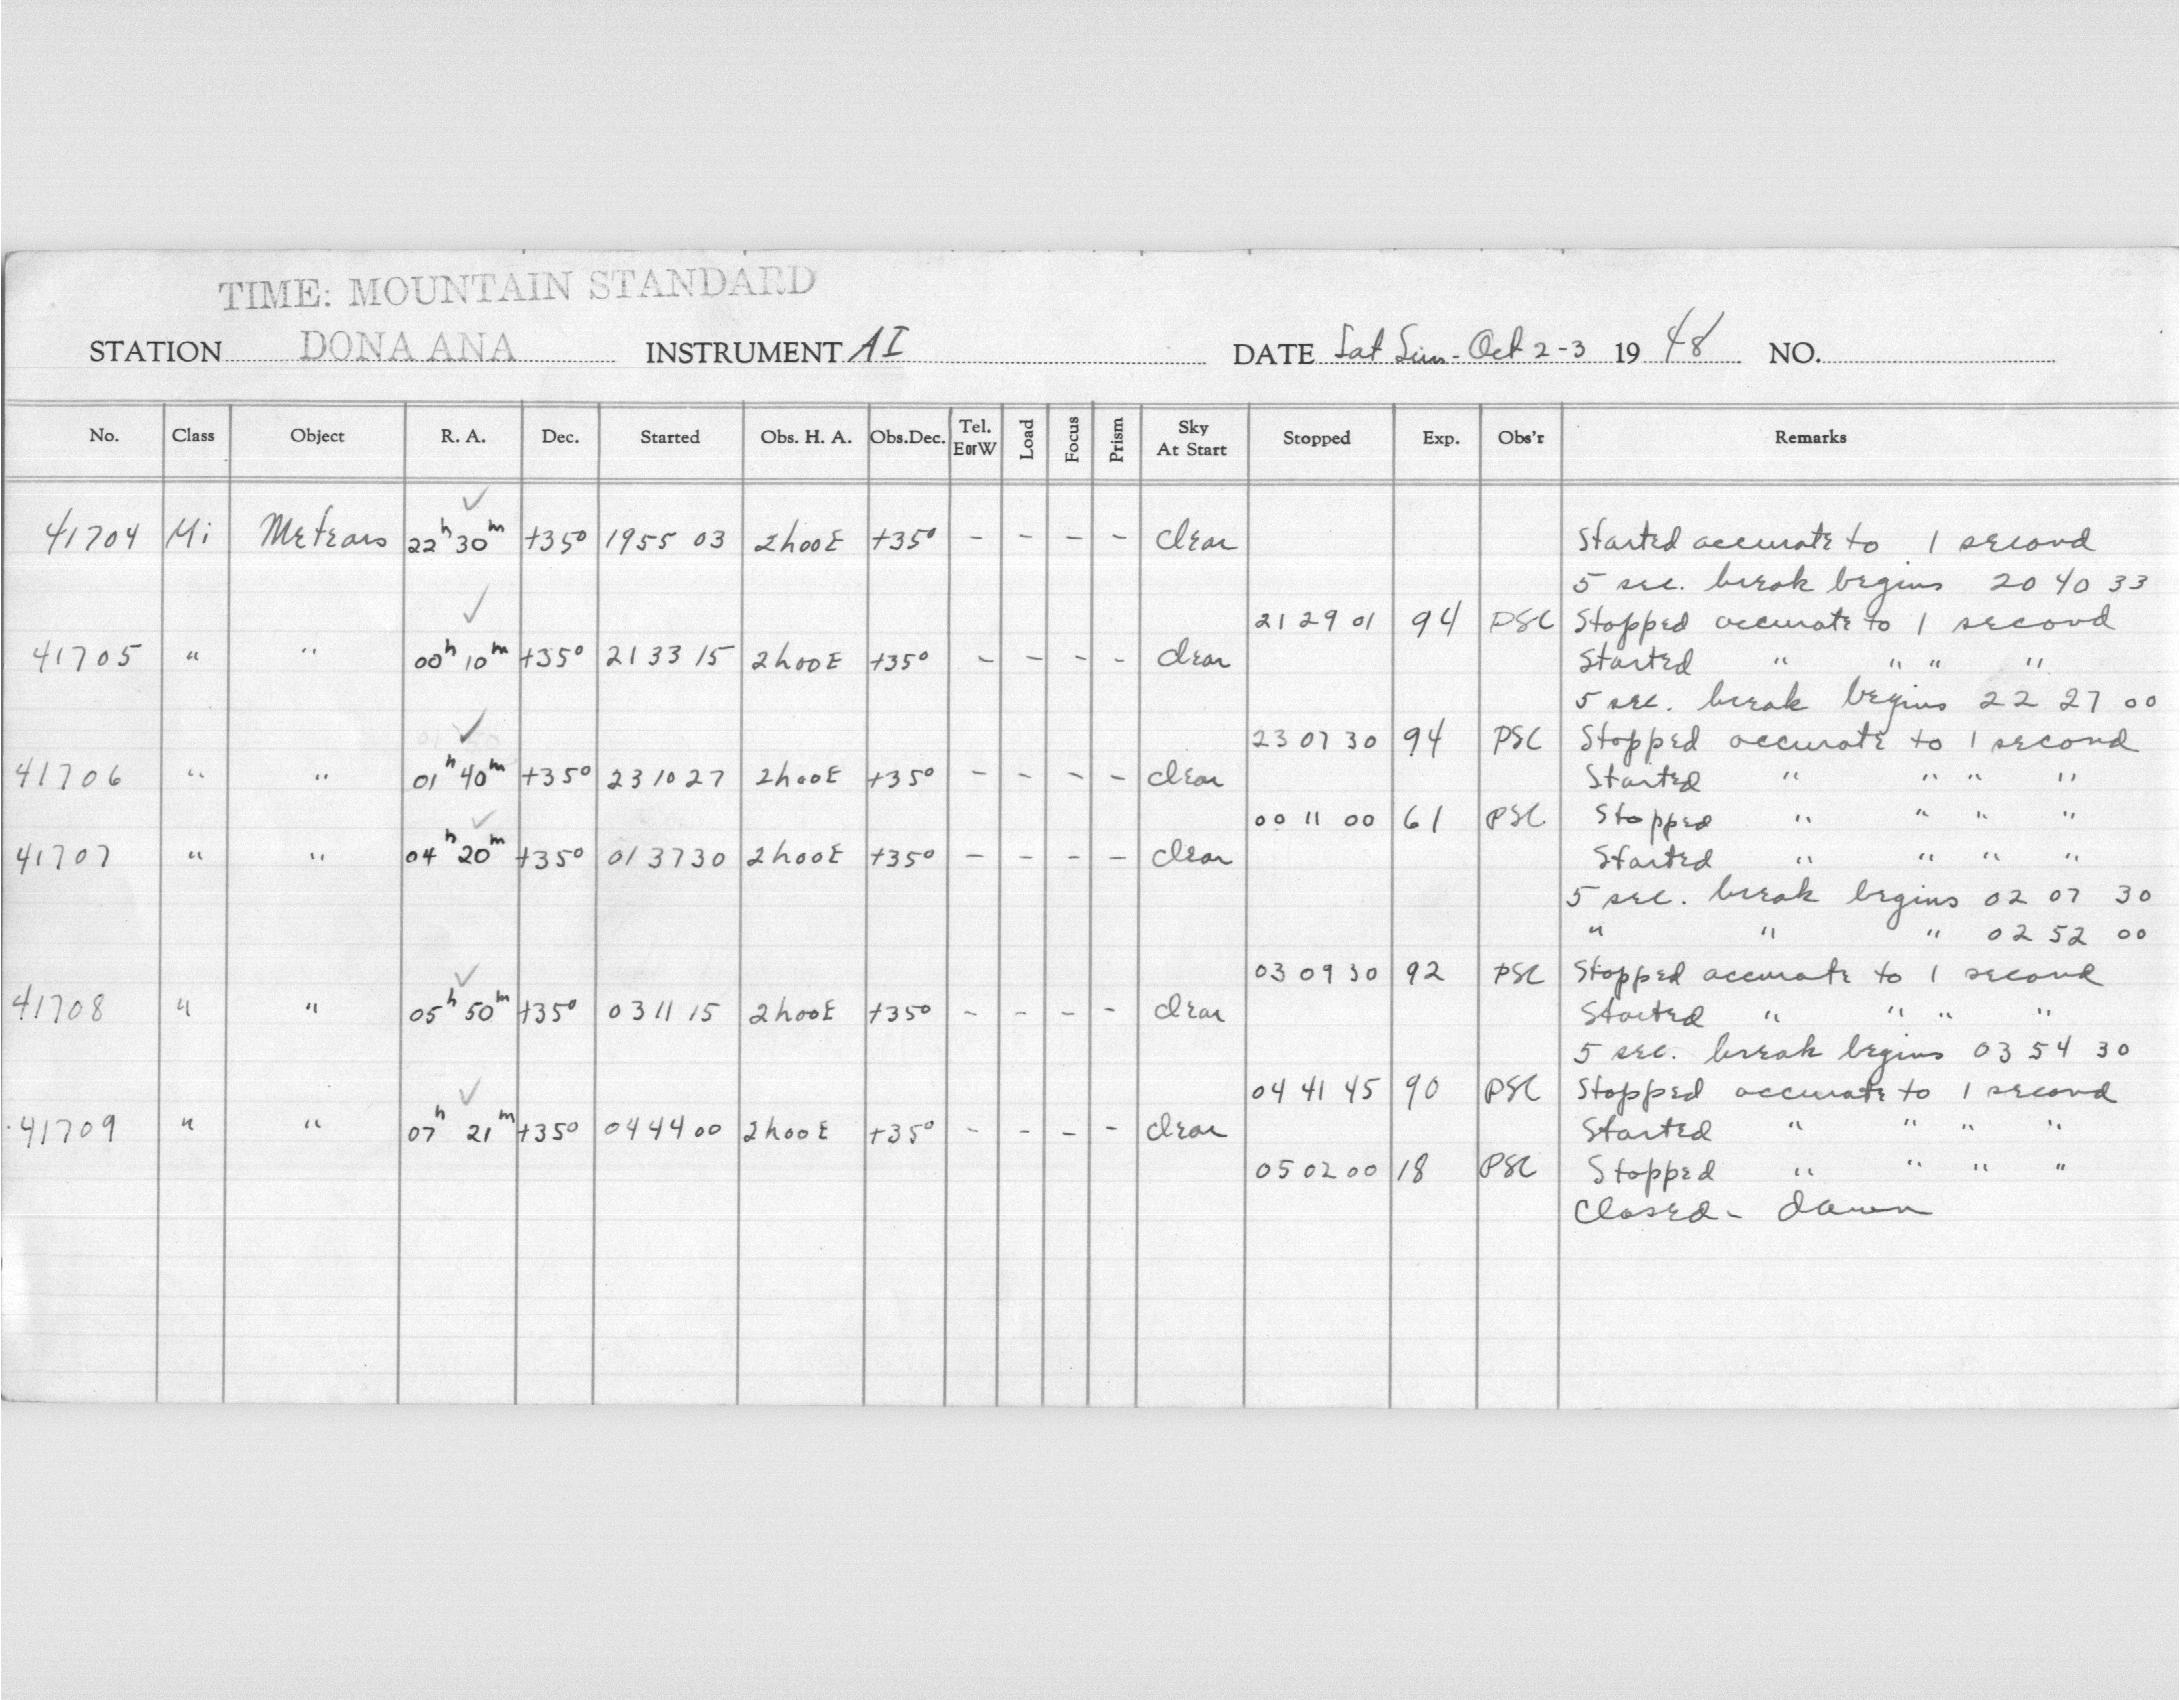 TIME: MOUNTAIN STANDARD
STATION DONA ANA INSTRUMENT AI DATE Sat Sun - Oct 2-3 19 48 NO.
No. Class Object R. A. Dec. Started Obs. H. A. Obs.Dec. Tel. EorW Load Focus Prism Sky At Start Stopped Exp. Obs'r Remarks
41704 Mi Meteors 22h 30m +35° 19 55 03 2h00E +35° - - - - clear Started accurate to 1 second
5 sec. break begins 20 40 33
21 29 01 94 PSC Stopped accurate to 1 second
41705 " " 00h 10m +35° 21 33 15 2h00E +35° - - - - clear Started " " " "
5 sec. break begins 22 27 00
23 07 30 94 PSC Stopped accurate to 1 second
41706 " " 01h 40m +35° 23 10 27 2h00E +35° - - - - clear Started " " " "
00 11 00 61 PSC Stopped " " " "
41707 " " 04h 20m +35° 01 37 30 2h00E +35° - - - - clear Started " " " "
5 sec. break begins 02 07 30
" " " 02 52 00
03 09 30 92 PSC Stopped accurate to 1 second
41708 " " 05h 50m +35° 03 11 15 2h00E +35° - - - - clear Started " " " "
5 sec. break begins 03 54 30
04 41 45 90 PSC Stopped accurate to 1 second
41709 " " 07h 21m +35° 04 44 00 2h00E +35° - - - - clear Started " " " "
05 02 00 18 PSC Stopped " " " "
Closed - dawn